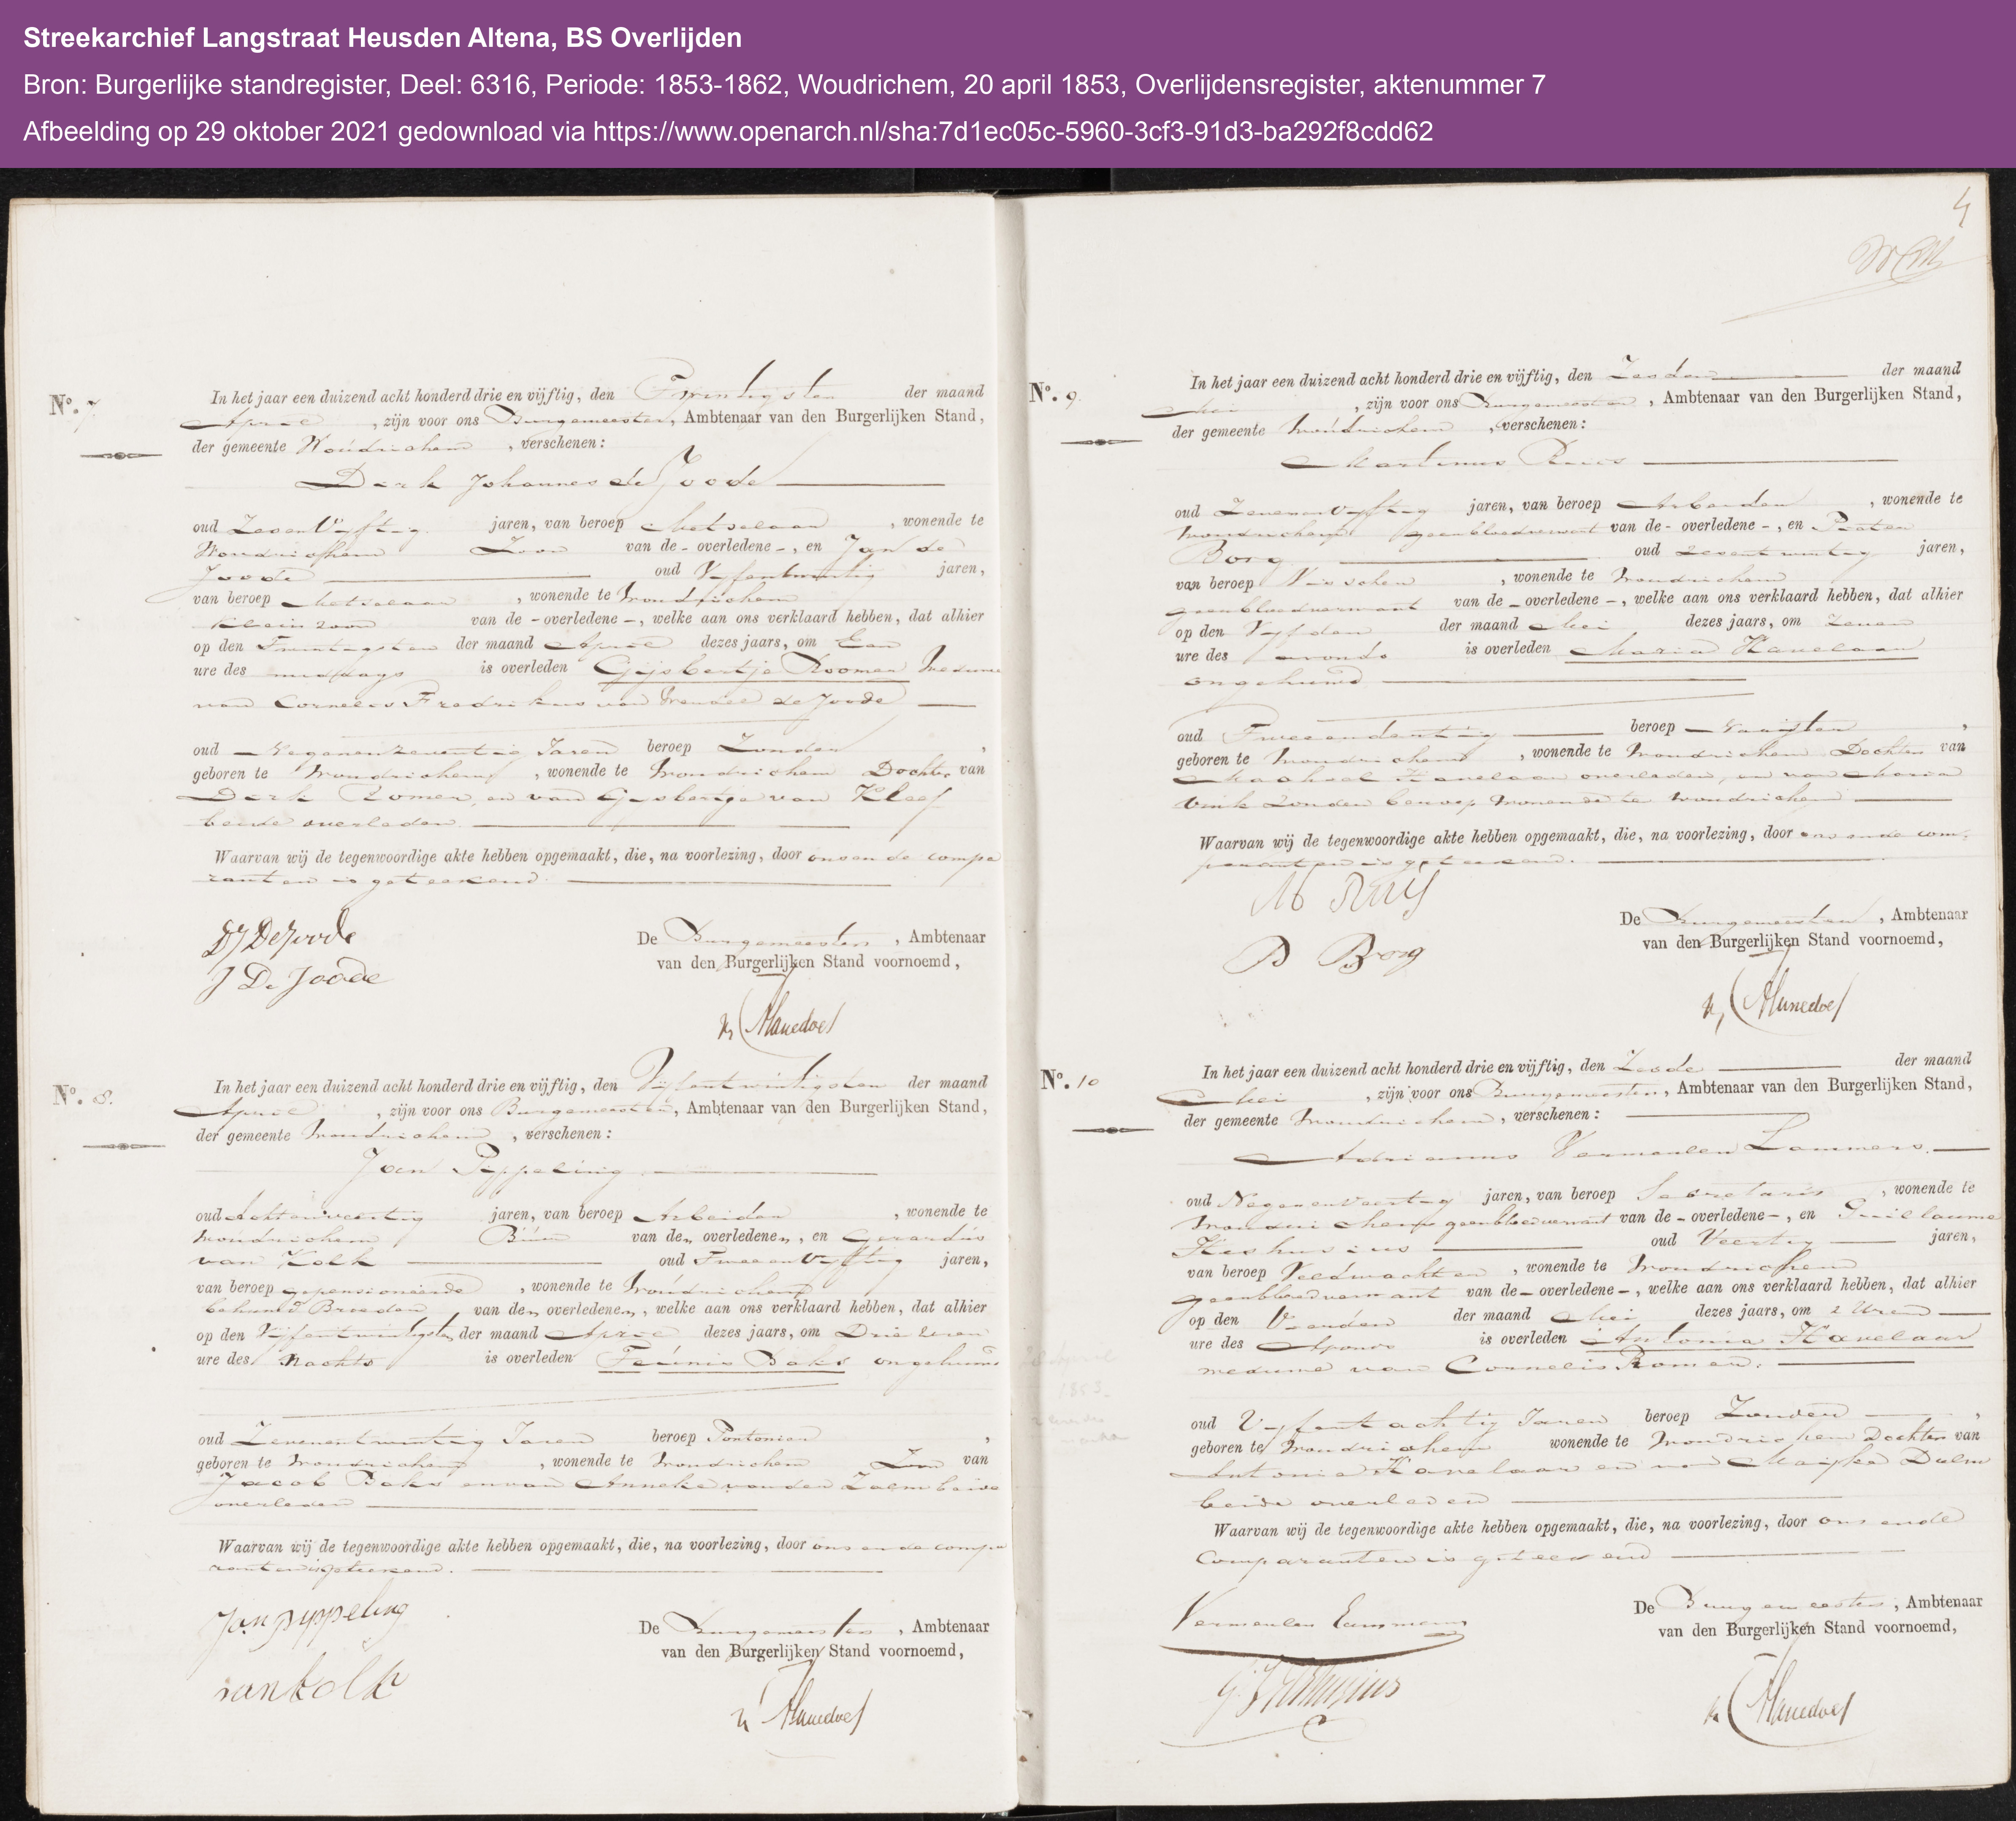 Streekarchief Langstraat Heusden Altena, BS Overlijden
Bron: Burgerlijke standregister, Deel: 6316, Periode: 1853-1862, Woudrichem, 20 april 1853, Overlijdensregister, aktenummer 7
Afbeelding op 29 oktober 2021 gedownload via https://www.openarch.nl/sha:7d1ec05c-5960-3cf3-91d3-ba292f8cdd62
No. 7
In het jaar een duizend acht honderd drie en vijftig, den Twintigsten der maand
April, zijn voor ons Burgemeester, Ambtenaar van den Burgerlijken Stand,
der gemeente Woudrichem, verschenen:
Dirk Johannes de Joode
oud Zeven Vijftig jaren, van beroep Metselaar, wonende te
Woudrichem Zoon van de - overledene -, en Jan de
Joode oud Vijfentwintig jaren,
van beroep Metselaar, wonende te Woudrichem
Kleinzoon van de - overledene -, welke aan ons verklaard hebben, dat alhier
op den Twintigsten der maand April dezes jaars, om Een
ure des middags is overleden Gijsbertje Roomer Weduwe
van Cornelis Fredrikus van Wendel de Joode
oud Negenenzeventig Jaren beroep Zonder,
geboren te Woudrichem, wonende te Woudrichem Dochter van
Dirk Romer, en van Gijsbertje van Kleef
beide overleden
Waarvan wij de tegenwoordige akte hebben opgemaakt, die, na voorlezing, door ons en de compa
ranten is geteekend.
DJ De Joode
J De Joode
De Burgemeester, Ambtenaar
van den Burgerlijken Stand voornoemd,
No. 8.
In het jaar een duizend acht honderd drie en vijftig, den Vijfentwintigsten der maand
April, zijn voor ons Burgemeester, Ambtenaar van den Burgerlijken Stand,
der gemeente Woudrichem, verschenen:
Jan Pippeling
oud Achtenveertig jaren, van beroep Arbeider, wonende te
Woudrichem Buur van den overledenen, en Gerardus
van Kolk oud Tweeenvijftig jaren,
van beroep gepensioneerde, wonende te Woudrichem
behuwd Broeder van den overledenen, welke aan ons verklaard hebben, dat alhier
op den Vijfentwintigsten der maand April dezes jaars, om Drie uren
ure des Nachts is overleden Teunis Baks ongehuwd
oud Zevenentwintig Jaren beroep Pontonier,
geboren te Woudrichem, wonende te Woudrichem Zoon van
Jacob Baks en van Anneke van der Zalm beide
overleden
Waarvan wij de tegenwoordige akte hebben opgemaakt, die, na voorlezing, door ons en de compa
ranten is geteekend.
Jan pyppeling
van kolk
De Burgemeester, Ambtenaar
van den Burgerlijken Stand voornoemd,
4
No. 9
In het jaar een duizend acht honderd drie en vijftig, den Zesden der maand
Mei, zijn voor ons Burgemeester, Ambtenaar van den Burgerlijken Stand,
der gemeente Woudrichem, verschenen:
Martinus Ruis
oud Zevenenvijftig jaren, van beroep Arbeider, wonende te
Woudrichem geen bloedverwant van de - overledene -, en Pieter
Borg oud zesentwintig jaren,
van beroep Visscher, wonende te Woudrichem
geen bloedverwant van de - overledene -, welke aan ons verklaard hebben, dat alhier
op den Vijfden der maand Mei dezes jaars, om zeven
ure des avonds is overleden Maria Kavelaar
ongehuwd
oud Tweeendertig beroep Naaister,
geboren te Woudrichem, wonende te Woudrichem Dochter van
Machiel Kavelaar overleden, en van Maria
Vink Zonder beroep wonende te Woudrichem
Waarvan wij de tegenwoordige akte hebben opgemaakt, die, na voorlezing, door ons en de com-
paranten is geteekend.
M Ruis
P Borg
De Burgemeester, Ambtenaar
van den Burgerlijken Stand voornoemd,
No. 10
In het jaar een duizend acht honderd drie en vijftig, den Zesde der maand
Mei, zijn voor ons Burgemeester, Ambtenaar van den Burgerlijken Stand,
der gemeente Woudrichem, verschenen:
Adrianus Vermeulen Lammers
oud Negenenveertig jaren, van beroep Secretaris, wonende te
Woudrichem geen bloedverwant van de - overledene -, en Guillaume
oud Veertig jaren,
van beroep Veldwachter, wonende te Woudrichem
geen bloedverwant van de - overledene -, welke aan ons verklaard hebben, dat alhier
op den Vierden der maand Mei dezes jaars, om 2 Uren
ure des Avonds is overleden Antonia Kavelaar
weduwe van Cornelis Romer.
oud Vijfentachtig Jaren beroep Zonder,
geboren te Woudrichem wonende te Woudrichem Dochter van
Antonie Kavelaar en van Maijke Duim
beide overleden
Waarvan wij de tegenwoordige akte hebben opgemaakt, die, na voorlezing, door ons en de
Comparanten is geteekend
Vermeulen Lammers
De Burgemeester, Ambtenaar
van den Burgerlijken Stand voornoemd,